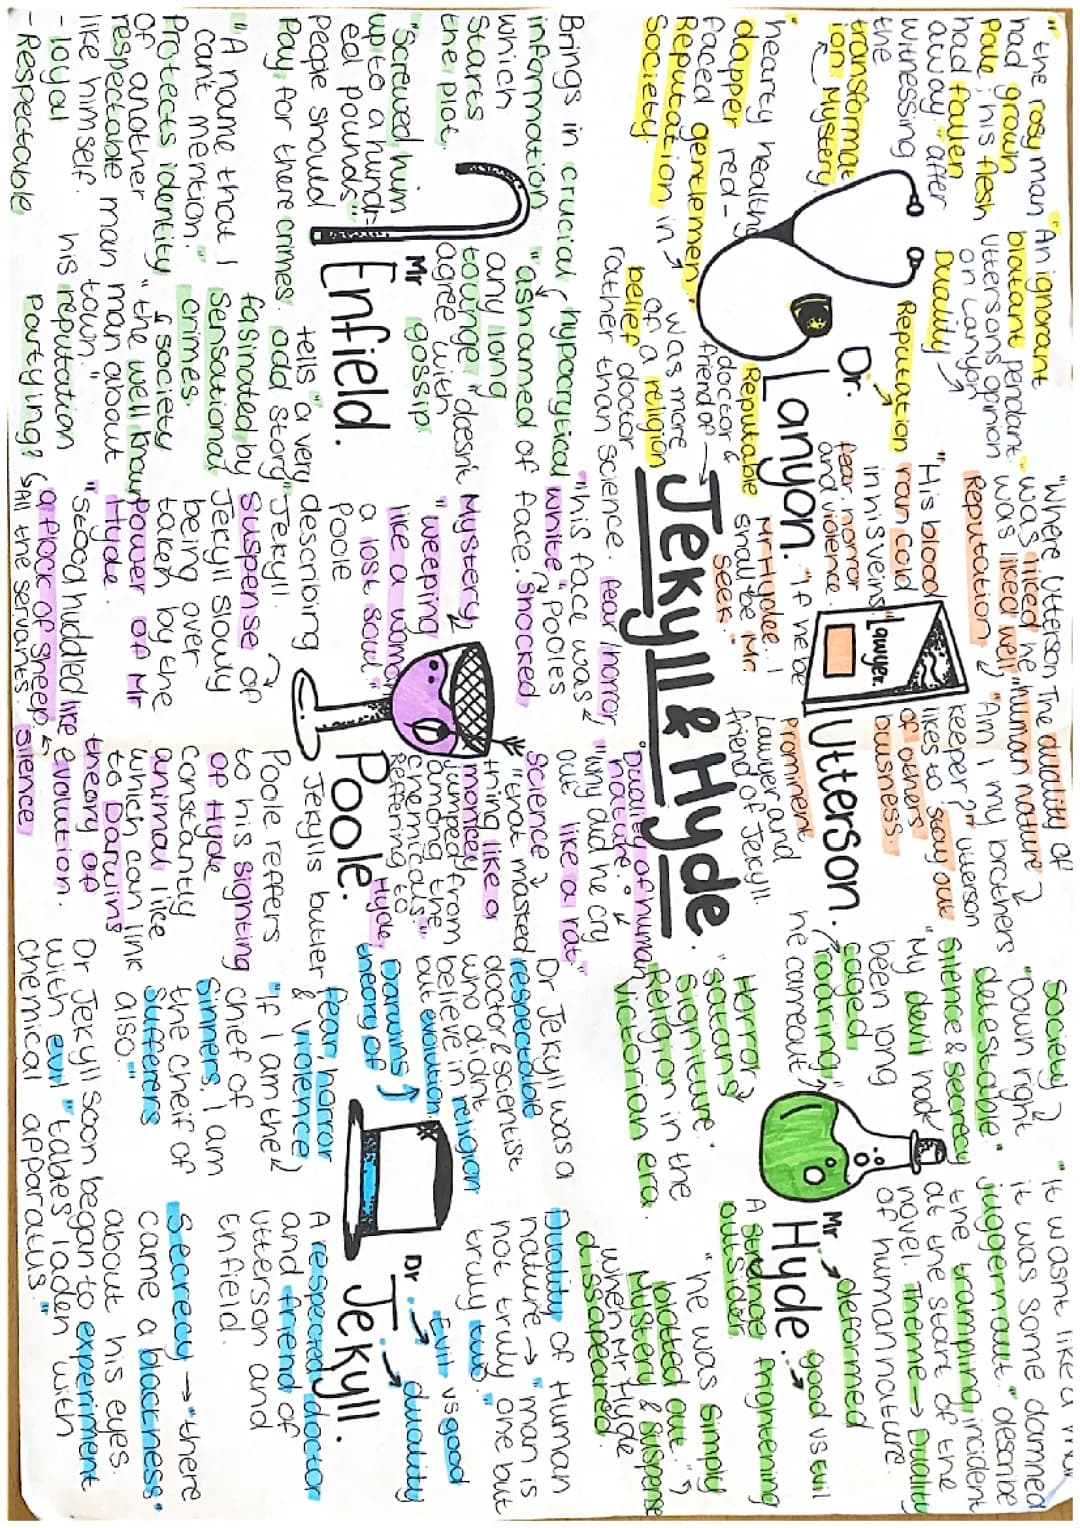 "the rosy man
had grown
pale; his flesh
had fallen
away" after
witnessing
the
transformat
ion Mystery
"hearty healthy
dapper red-
faced gentlemen"
Reputation in
Society.
"An ignorant
blatant pendant."
uttersons opinion
on Lanyon
Duality
Reputation
Dr.
Lanyon.
Reputable
doctor &
friend of
was more
of a religion
belief doctor
rather than science.
"Where Utterson
was liked he
was liked well"
Reputation
"His blood
ran cold
in his veins"
fear, horror
and violence.
"If he be
Mr Hyde... I
shall be Mr
Seek."
Lawyer.
The duality of
human nature
"Am I my brothers
keeper?" utterson
likes to stay out
of others
buisness.
Utterson.
Prominent
Lawyer and
friend of Jekyll.
Jekyll & Hyde.
Society
"Down right
detestable"
Silence & secrecy
"My devil had
been long
caged
he came out
roaring"
Horror
"satans
signiture"
Religion in the
Victorian era.
"It wasnt like a man
it was some damned
juggernaut." describe
the trampling incident
at the start of the
novel. Theme → Duality
of human nature.
Mr
Hyde.
deformed
good vs evil
A stranger
outsider.
frightening
"he was simply
blotted out."
Mystery & suspense
when Mr Hyde
dissapeared.
Brings in crucial
information
which
starts
the plot.
"Screwed him
up to a hundr-
ed pounds"
people should
Pay for there crimes.
"A name that I
cant mention."
Protects identity
of another
respectable man
like himself.
- loyal
- Respectable
hypocrytical
"ashamed of
any long
tounge" doesnt
agree with
gossip.
Mr
Enfield.
tells "a very
odd story"
fasinated by
Sensational
crimes.
& society
"the well known
man about
town."
his reputation
Partying?
"his face was
white" Pooles
face. Shocked
fear/horror
Mystery
"weeping
like a woman
a lost soul"
Poole
describing
Jekyll.
Suspense of
Jekyll slowy
being over
taken by the
power of Mr
Hyde.
"Stood huddled like
a flock of sheep.
↳ All the servants. Silence
Duality of human
nature.
"why did he cry
out like a rat."
Science
"that masked
thing like a
monkey
jumped from
among the
chemicals"
Reffering to
Hyde
Poole.
Jekylls butler
Poole reffers
to his sighting
of Hyde
constantly
animal like
which can link
to Darwins
theory of
evolution.
Dr Jekyll was a
respectable
doctor & scientist
who didnt
believe in religion
but evolution
Darwins
theory of
fear, horror
& violence
"If I am the
chief of
sinners, I am
the cheif of
sufferers
also."
Dr Jekyll soon began to experiment
with evil "tables laden with
chemical apparatus."
Duality of Human
nature → "man is
not truly one but
truly two."
Dr.
Jekyll.
Evil vs good
duality
A respected doctor
and friend of
utterson and
Enfield.
Secrecy → "there
came a blackness
about his eyes.